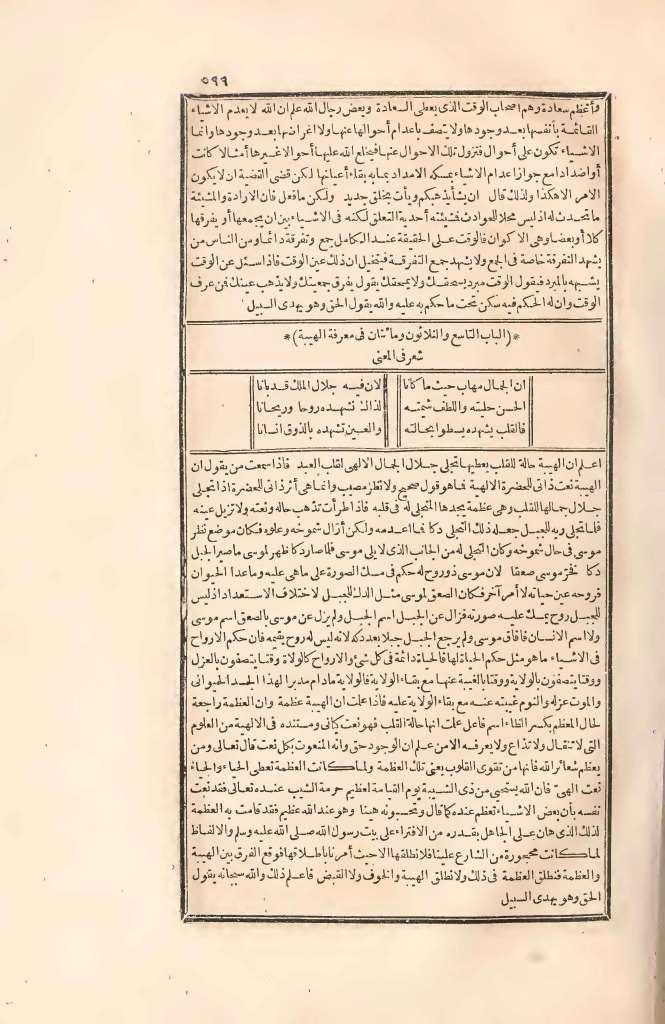 ٥٩٩
وأعظم سعادة وهم اصحاب الوقت الذى يعطى السعادة وبعض رجال الله علم ان الله لا يعدم الاشياء
القائمة بأنفسها بعد وجودها ولا يتصف باعدام أحوالها عنها ولا اعراضها بعد وجودها وانما
الاشياء تكون على أحوال فتزول تلك الاحوال عنها فيخلع الله عليها أحوالا غيرها أمثالا كانت
أو أضدادا مع جواز اعدام الاشياء بمسكه الامداد بما به بقاء أعيانها لكن قضى القضية ان لا يكون
الامر الا هكذا ولذلك قال ان يشأ يذهبكم ويأت بخلق جديد ولكن ما فعل فان الارادة والمشيئة
ما تحدث له اذ ليس محلا للحوادث فمشيئته أحدية التعلق لكنه فى الاشياء بين ان يجمعها أو يفرقها
كلا أو بعضا وهى الاكوان فالوقت على الحقيقة عند الكامل جمع وتفرقة دائما ومن الناس من
يشهد التفرقة خاصة فى الجمع ولا يشهد جمع التفرقة فيتخيل ان ذلك عين الوقت فاذا سئل عن الوقت
يشبهه بالمبرد فيقول الوقت مبرد يسحقك ولا يمحقك يقول يفرق جمعيتك ولا يذهب عينك فمن عرف
الوقت وان له الحكم فيه سكن تحت ما حكم به عليه والله يقول الحق وهو يهدى السبيل
*(الباب التاسع والثلاثون ومائتان فى معرفة الهيبة)*
شعر فى المعنى
ان الجمال مهاب حيث ما كانا لان فيه جلال الملك قد بانا
الحسن حليته واللطف شيمته لذاك نشهده روحا وريحانا
فالقلب يشهده يسطو بحالته والعين تشهده بالذوق انسانا
اعلم ان الهيبة حالة للقلب يعطيها تجلى جلال الجمال الالهى لقلب العبد فاذا سمعت من يقول ان
الهيبة نعت ذاتى للحضرة الالهية فما هو قول صحيح ولا نظر مصيب وانما هى أثر ذاتى للحضرة اذا تجلى
جلال جمالها للقلب وهى عظمة يجدها المتجلى له فى قلبه فاذا طرأت تذهب حاله ونعته ولا تزيل عينه
فلما تجلى ربه للجبل جعله ذلك التجلى دكا فما اعدمه ولكن أزال شموخه وعلوه فكان موضع نظر
موسى فى حال شموخه وكان التجلى له من الجانب الذى لا يلى موسى فلما صار دكا ظهر لموسى ما صير الجبل
دكا فخر موسى صعقا لان موسى ذو روح له حكم فى مسك الصورة على ما هى عليه وما عدا الحيوان
فروحه عين حياته لا أمر آخر فكان الصعق لموسى مثل الدك للجبل لاختلاف الاستعداد اذ ليس
للجبل روح يمسك عليه صورته فزال عن الجبل اسم الجبل ولم يزل عن موسى بالصعق اسم موسى
ولا اسم الانسان فأفاق موسى ولم يرجع الجبل جبلا بعد دكه لانه ليس له روح يقيمه فان حكم الارواح
فى الاشياء ما هو مثل حكم الحياة لها فالحياة دائمة فى كل شئ والارواح كالولاة وقتا يتصفون بالعزل
ووقتا يتصفون بالولاية ووقتا بالغيبة عنها مع بقاء الولاية فالولاية مادام مدبرا لهذا الجسد الحيوانى
والموت عزله والنوم غيبته عنه مع بقاء الولاية عليه فاذا علمت ان الهيبة عظمة وان العظمة راجعة
لحال المعظم بكسر الظاء اسم فاعل علمت انها حالة القلب فهو نعت كيانى ومستنده فى الالهية من العلوم
التى لا تنقال ولا تذاع ولا يعرفه الا من علم ان الوجود حق وانه المنعوت بكل نعت قال تعالى ومن
يعظم شعائر الله فانها من تقوى القلوب يعنى تلك العظمة ولما كانت العظمة تعطى الحياء والحياء
نعت الهى فان الله يستحيى من ذى الشيبة يوم القيامة لعظيم حرمة الشيب عنده تعالى فقد نعت
نفسه بأن بعض الاشياء تعظم عنده كما قال وتحسبونه هينا وهو عند الله عظيم فقد قامت به العظمة
لذلك الذى هان على الجاهل بقدره من الافتراء على بيت رسول الله صلى الله عليه وسلم والالفاظ
لما كانت محجورة من الشارع علينا فلا نطلقها الا حيث أمرنا باطلاقها فوقع الفرق بين الهيبة
والعظمة فنطلق العظمة فى ذلك ولا نطلق الهيبة والخوف ولا القبض فاعلم ذلك والله سبحانه يقول
الحق وهو يهدى السبيل